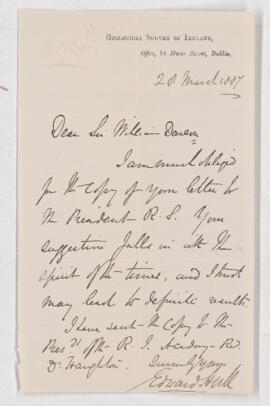 GEOLOGICAL SURVEY OF IRELAND,
Office, 14 Hume Street, Dublin,
28 March 1887
Dear Sir William Dawson
I am much obliged
for the Copy of your letter to
the President R. S. Your
suggestion falls in with the
spirit of the times, and I trust
may lead to definite results.
I have sent the Copy to the
Presdt of the R. I. Academy - Rev
Dr. Haughton. Sincerely yours
Edward Hull